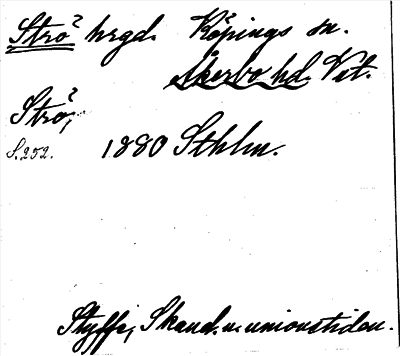 Strö hrgd. Köpings sn.
Åkerbo hd. Vst.
Strö,
S. 252. 1880 Sthlm.
Styffe, Skand. u. unionstiden.